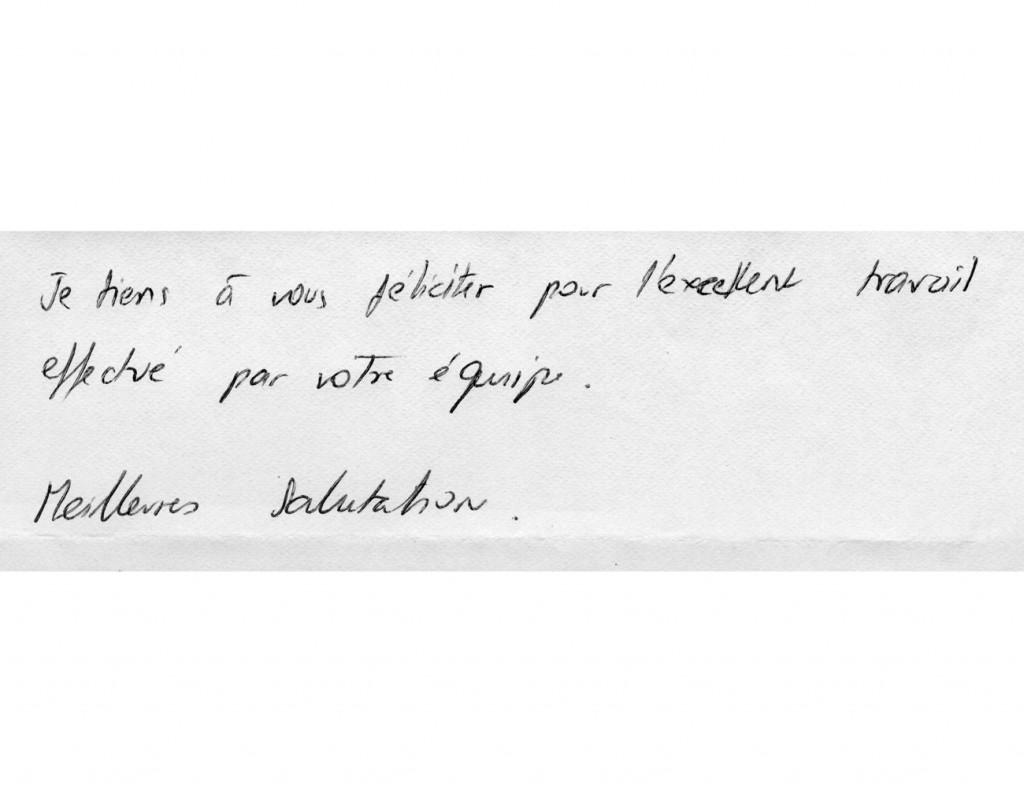 Je tiens à vous féliciter pour l'excellent travail
effectué par votre équipe.
Meilleures Salutation.